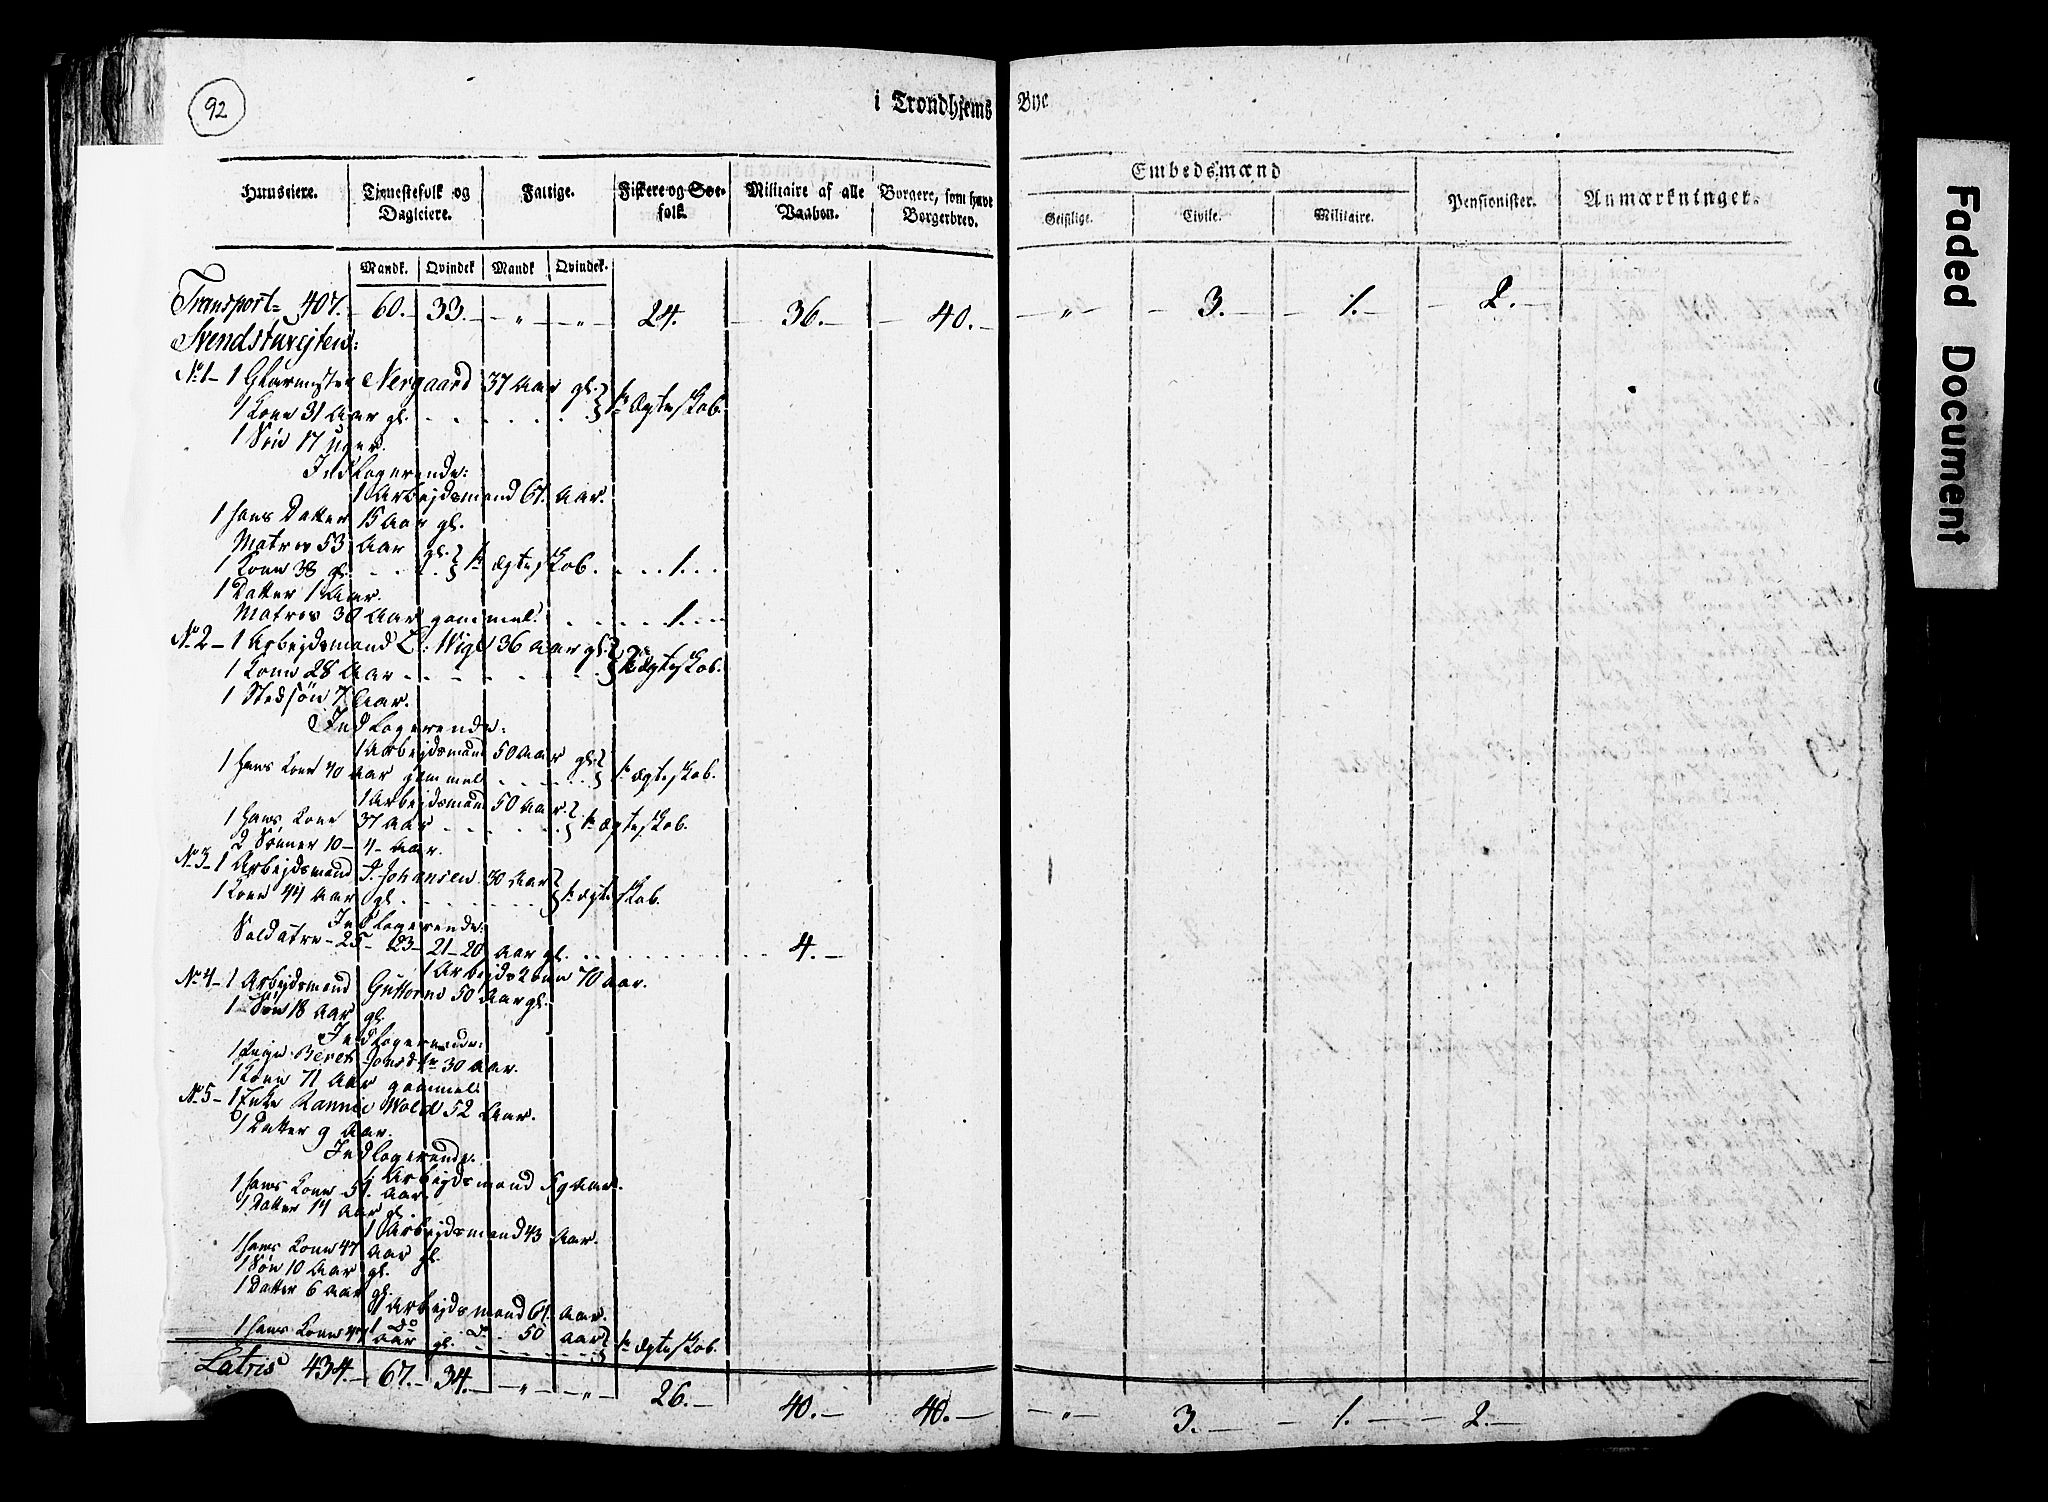 92
i Trondhjems Bye
Huuseiere. Tienestefolk og Dagleiere. Fattige. Fiskere og Søefolk. Militaire af alle Vaaben. Borgere, som have Borgerbrev. Embedsmænd Geistlige. Civile. Militaire. Pensionister. Anmærkninger.
Mandk. Qvindek Mandk Qvindek.
Transport= 407. 60. 33. — „ — „ — 24. — 36. — 40. — „ — 3. — 1. — 2. —
Svendstuvejten:
No 1 – 1 Glarmester Nergaard 37 Aar gl. } 1te Ægteskab.
1 Kone 31 Aar gl.
1 Søn 17 uger.
Indlogerende:
1 Arbejdsmand 61. Aar.
1 hans Datter 15 Aar gl.
Matros 53 Aar gl. } 1te Ægteskab. . . . 1. . .
1 Kone 38 gl.
1 Datter 1 Aar.
Matros 30 Aar gammel. . . . 1. . .
No 2 – 1 Arbejdsmand C: Wigel 36 Aar gl. } Ægteskab.
1 Kone 28 Aar
1 Stedsøn 7 Aar.
Indlogerende:
1 Arbejdsmand 50 Aar gl. } 1te Ægteskab.
1 hans Kone 40 Aar gammel
1 Arbejdsmand 50 Aar. } 1te Ægteskab.
1 hans Kone 37 Aar
2 Sønner 10 – 4 – Aar.
No 3 – 1 Arbejdsmand J. Johansen 30 Aar } 1te Ægteskab.
1 Kone 44 Aar gl.
Indlogerende:
Soldater – 25 – 23 – 21 – 20 Aar gl. . . . 4. —
1 Arbejdskone 70 Aar.
No 4 – 1 Arbejdsmand Guttorm 50 Aar gl.
1 Søn 18 Aar gl.
Indlogerende:
1 Pige Beret Jonsdtr 30 Aar.
1 Kone 71 Aar gammel.
No 5 – 1 Enke Rannie Wold 52 Aar.
1 Datter 9 Aar.
Indlogerende.
1 Arbejdsmand 59 Aar.
1 hans Kone 51. Aar.
1 Datter 14 Aar gl.
1 Arbejdsmand 43 Aar.
1 hans Kone 47 Aar gl.
1 Søn 10 Aar gl.
1 Datter 6 Aar gl.
1 Arbejdsmand 61. Aar.
1 Do Do 50 Aar } 1te Ægteskab.
1 hans Kone 44 Aar gl.
Latris 434. — 67. — 34. — „ — „ — 26. — 40. — 40. — „ — 3. — 1. — 2. —
Faded Document